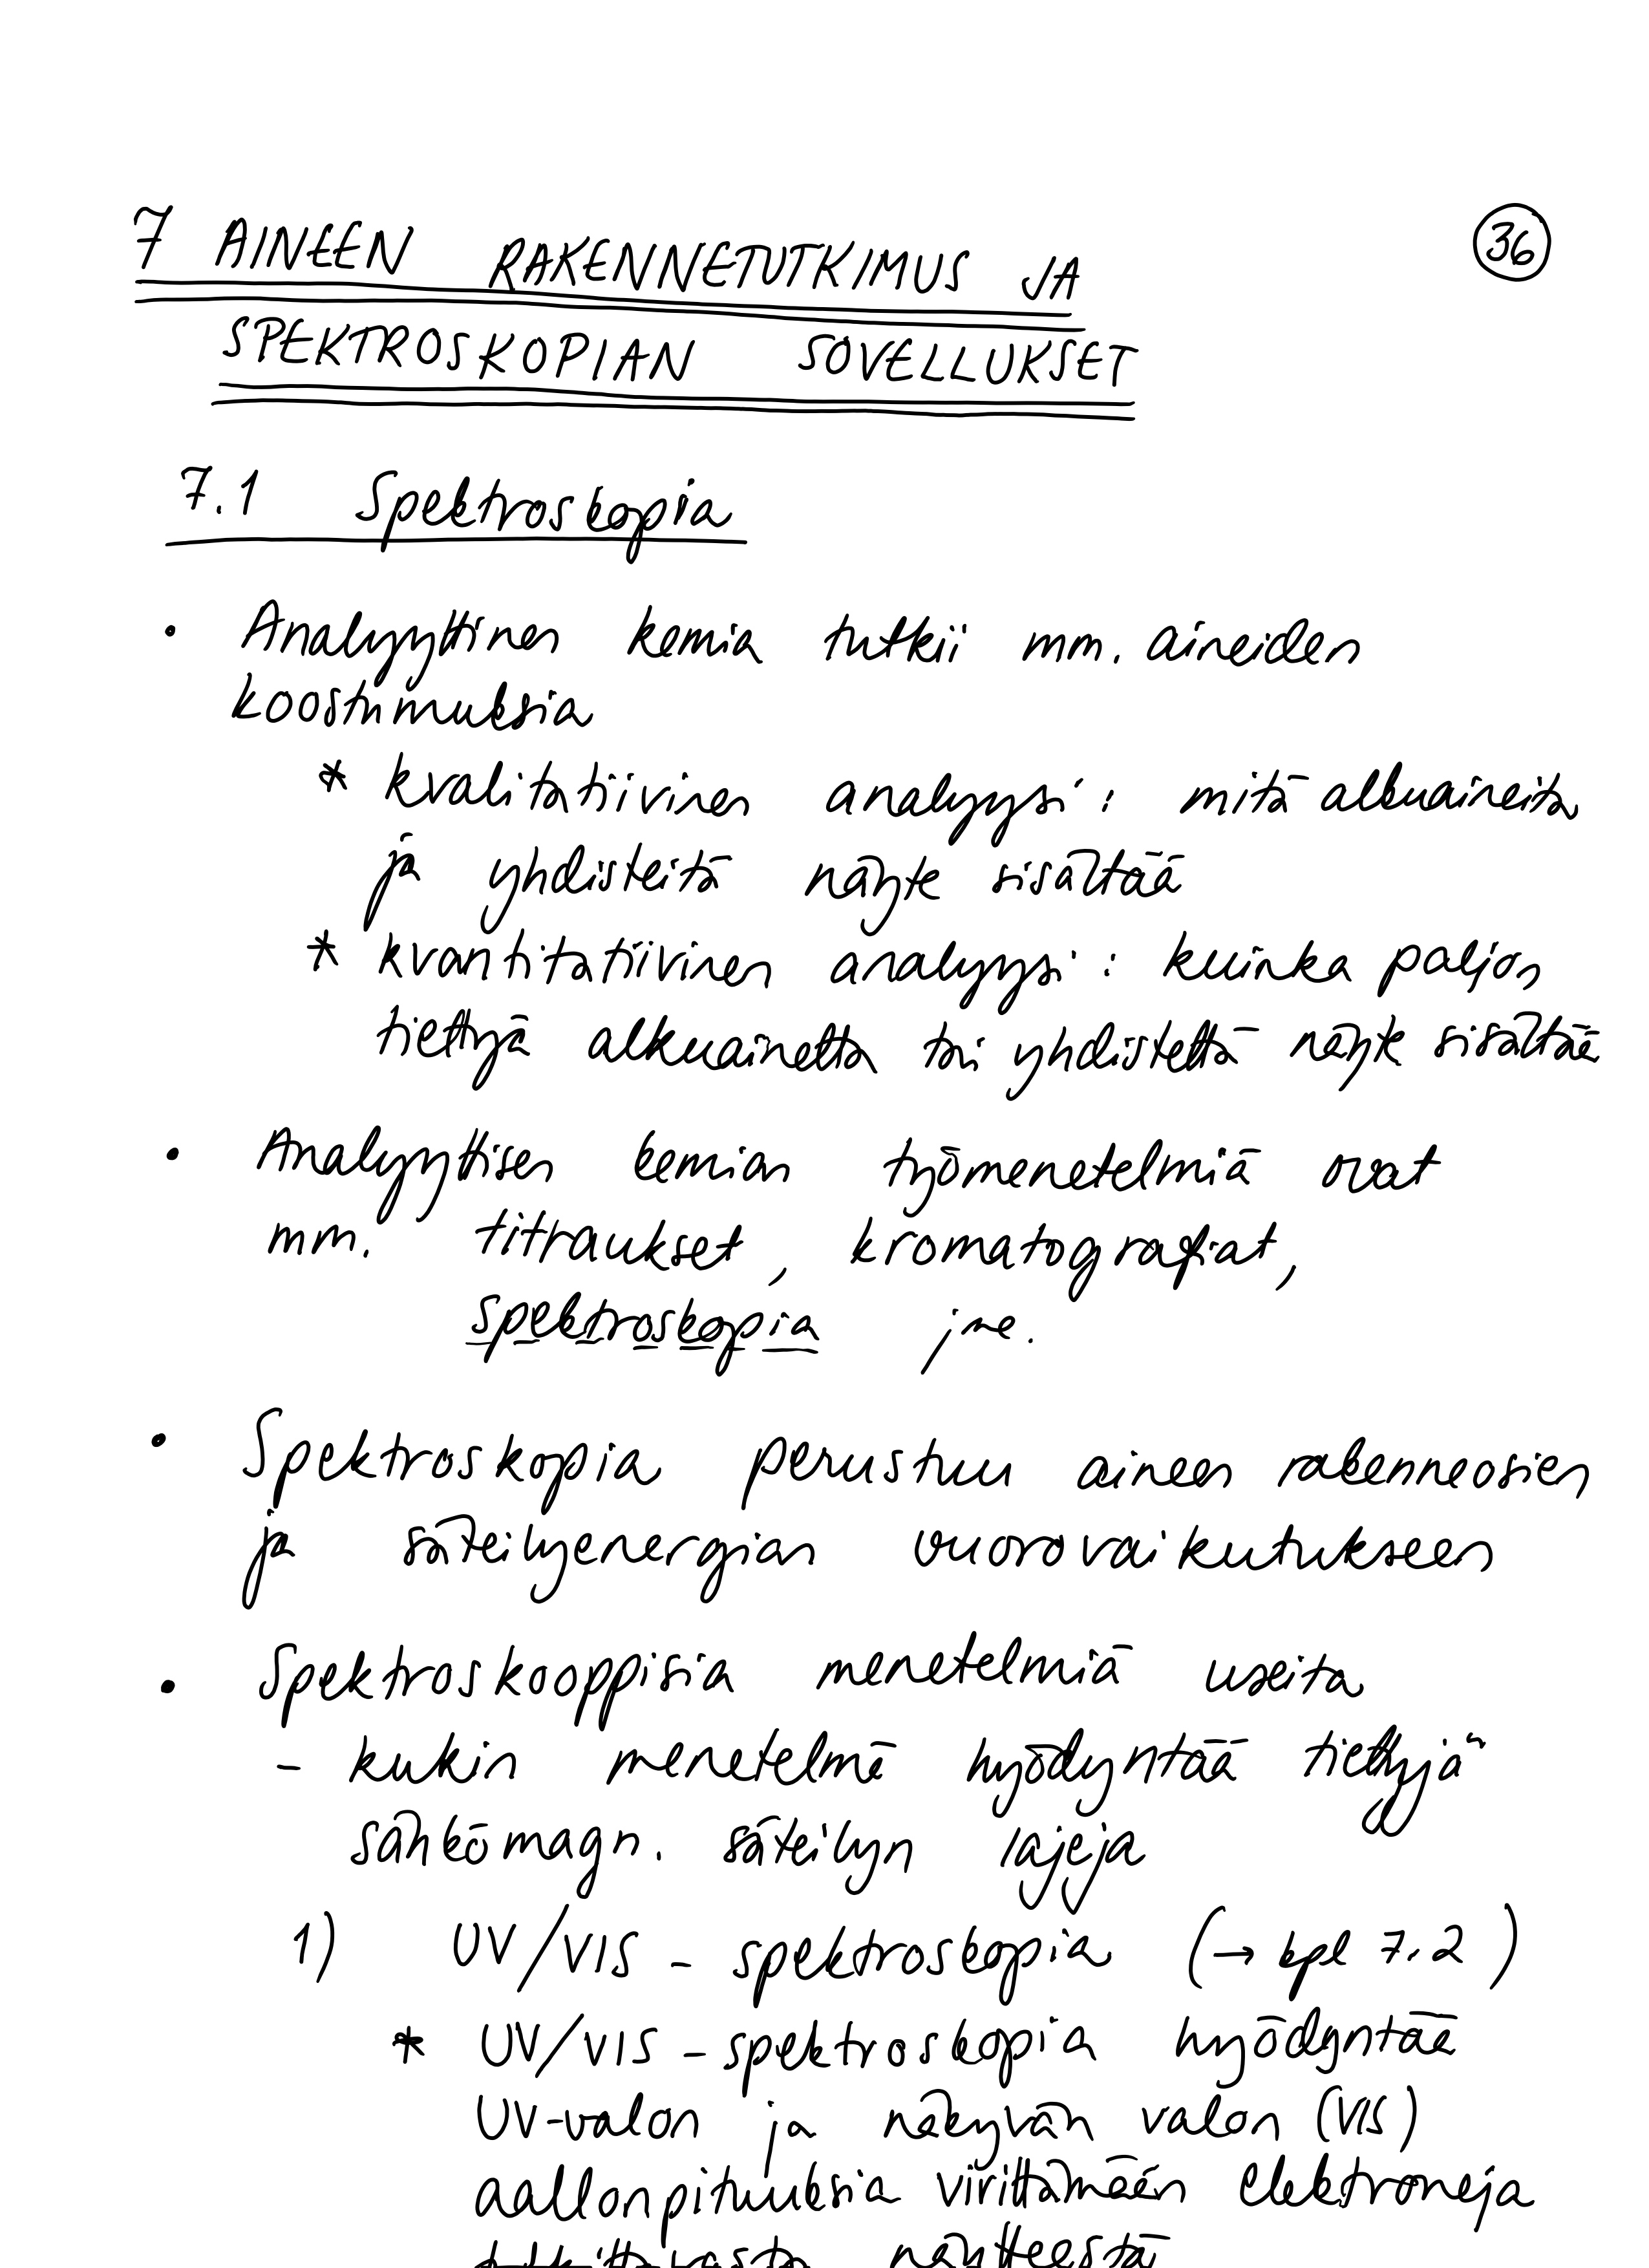 7 AINEEN RAKENNETUTKIMUS JA
36
SPEKTROSKOPIAN SOVELLUKSET
7.1 Spektroskopia
• Analyyttinen kemia tutkii mm. aineiden
koostumuksia
* kvalitatiivinen analyysi: mitä alkuaineita
ja yhdisteitä näyte sisältää
* kvantitatiivinen analyysi: kuinka paljon
tiettyä alkuainetta tai yhdistettä näyte sisältää
• Analyyttisen kemian työmenetelmiä ovat
mm. titraukset, kromatografiat,
spektroskopia jne.
• Spektroskopia perustuu aineen rakenneosien
ja säteilyenergian vuorovaikutukseen
• Spektroskooppisia menetelmiä useita
- kukin menetelmä hyödyntää tiettyjä
sähkömagn. säteilyn lajeja
1) UV/VIS - spektroskopia (→ kpl 7.2)
* UV/VIS - spektroskopia hyödyntää
UV-valon ja näkyvän valon (VIS)
aallonpituuksia virittämään elektroneja
tutkittavasta näytteestä